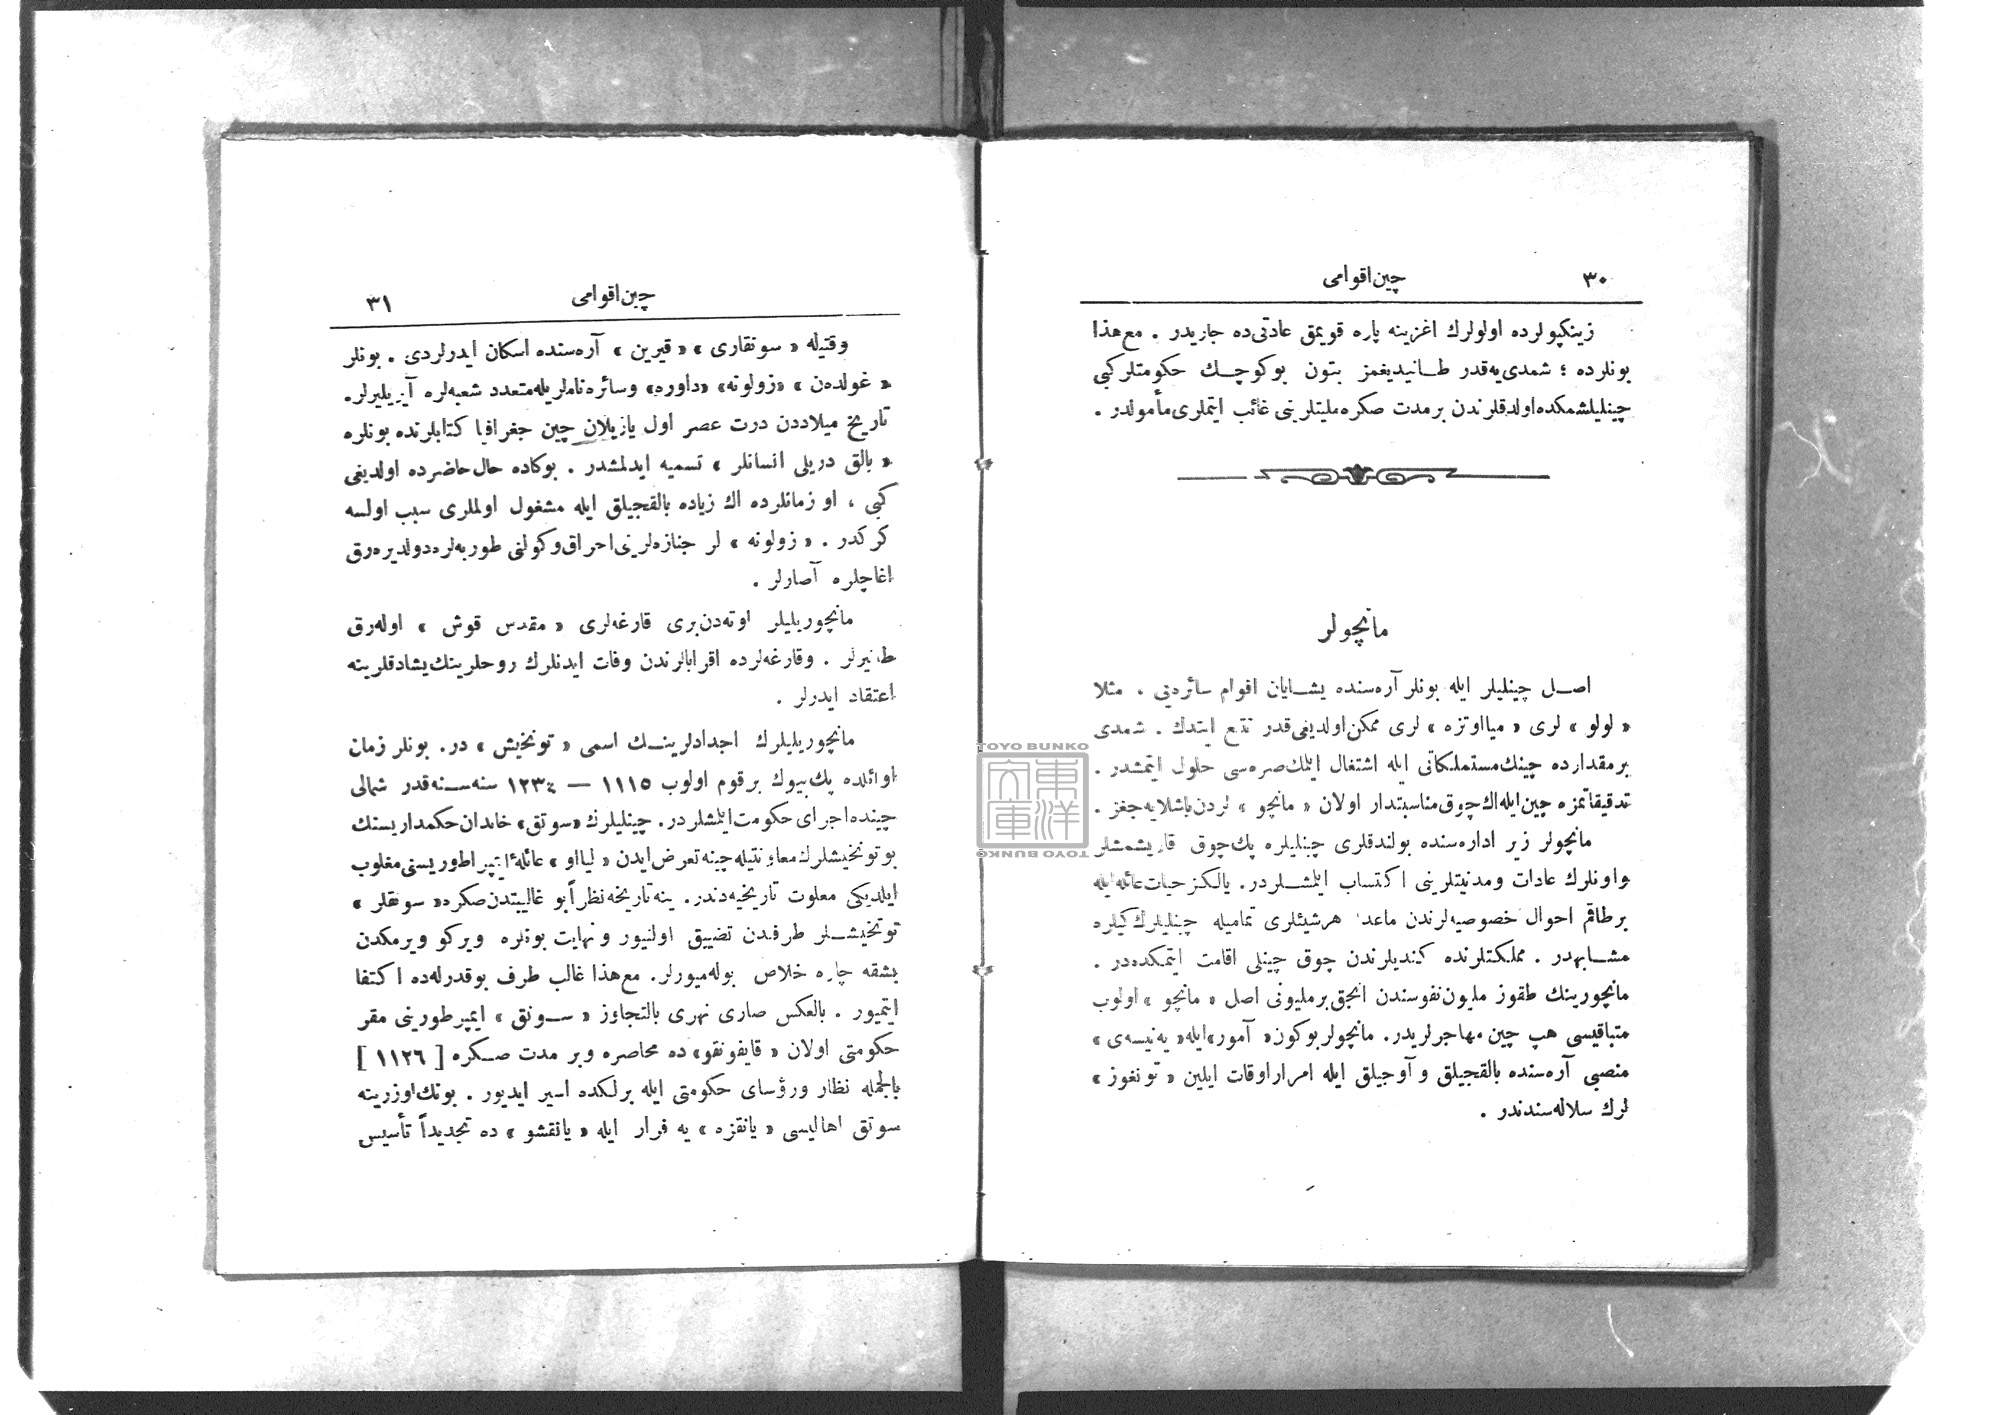 ٣٠
چین اقوامی
زینكپولرده اولولرك اغزینه پاره قویمق عادتی ده جاریدر . مع هذا
بونلرده ؛ شمدی یه قدر طانیدیغمز بتون بوكوچك حكومتلركبی
چینلیلشمكده اولدقلرندن برمدت صكره ملیتلرینی غائب ایتملری مأمولدر .
مانچولر
اصل چینلیلر ایله بونلر آره سنده یشایان اقوام سائره دنی . مثلا
« لولو » لری « میااوتزه » لری ممكن اولدیغی قدر تتبع ایتدك . شمدی
برمقدارده چینك مستملكاتی ایله اشتغال ایلمك صره سی حلول ایتمشدر .
تدقیقاتمزه چین ایله اك چوق مناسبتدار اولان « مانچو » لردن باشلایه جغز .
مانچولر زیر اداره سنده بولندقلری چینلیلره پك چوق قاریشمشلر
واونلرك عادات ومدنیتلرینی اكتساب ایلمشلردر. یالكز حیات عائله ایله
برطاقم احوال خصوصیه لرندن ماعدا هرشیئلری تمامیله چینلیلرك كیلره
مشابهدر . مملكتلرنده كندیلرندن چوق چینلی اقامت ایتمكده در .
مانچورینك طقوز ملیون نفوسندن انجق برملیونی اصل « مانچو » اولوب
متباقیسی هپ چین مهاجرلریدر. مانچولر بوكون « آمور» ایله « یه نیسه ی »
منصبی آره سنده بالقجیلق و آوجیلق ایله امرار اوقات ایلین « تونغوز »
لرك سلاله سندندر .
چین اقوامی
٣١
وقتیله « سونقاری » « قیرین » آره سنده اسكان ایدرلردی . بونلر
« غولده ن » «زولونه» «داوره» وسائره ناملریله متعدد شعبه لره آیریلیرلر.
تاریخ میلاددن درت عصر اول یازیلان چین جغرافیا كتابلرنده بونلره
« بالق دریلی انسانلر » تسمیه ایدلمشدر . بوكاده حال حاضرده اولدیغی
كبی ، او زمانلرده اك زیاده بالقجیلق ایله مشغول اولملری سبب اولسه
كركدر . « زولونه » لر جنازه لرینی احراق وكولنی طوربه لره دولدیره رق
اغاچلره آصارلر .
مانچوریلیلر اوته دن بری قارغه لری « مقدس قوش » اوله رق
طانیرلر . وقارغه لرده اقربالرندن وفات ایدنلرك روحلرینك یشادقلرینه
اعتقاد ایدرلر .
مانچوریلیلرك اجدادلرینك اسمی « تونخیش » در. بونلر زمان
اوائلده پك بیوك برقوم اولوب ١١١٥ — ١٢٣٤ سنه سنه قدر شمالی
چینده اجرای حكومت ایلمشلردر. چینلیلرك «سونق» خاندان حكمداریسنك
بو تونخیشلرك معاونتیله چینه تعرض ایدن « لیااو » عائلهٔ ایمپراطوریسنی مغلوب
ایلدیكی معلوت تاریخیه دندر. ینه تاریخه نظراً بو غالبیتدن صكره « سونقلر »
تونخیشلر طرفندن تضییق اولنیور و نهایت بونلره ویركو ویرمكدن
بشقه چاره خلاص بوله میورلر. مع هذا غالب طرف بوقدرله ده اكتفا
ایتمیور . بالعكس صاری نهری بالتجاوز « سونق » ایمپرطورینی مقر
حكومتی اولان « قایفونقو» ده محاصره وبر مدت صكره [ ١١٢٦ ]
بالجمله نظار ورؤسای حكومتی ایله برلكده اسیر ایدیور . بونك اوزرینه
سونق اهالیسی « یانقزه » یه فرار ایله « یانقشو » ده تجدیداً تأسیس
TOYO BUNKO
東洋文庫
TOYO BUNKO